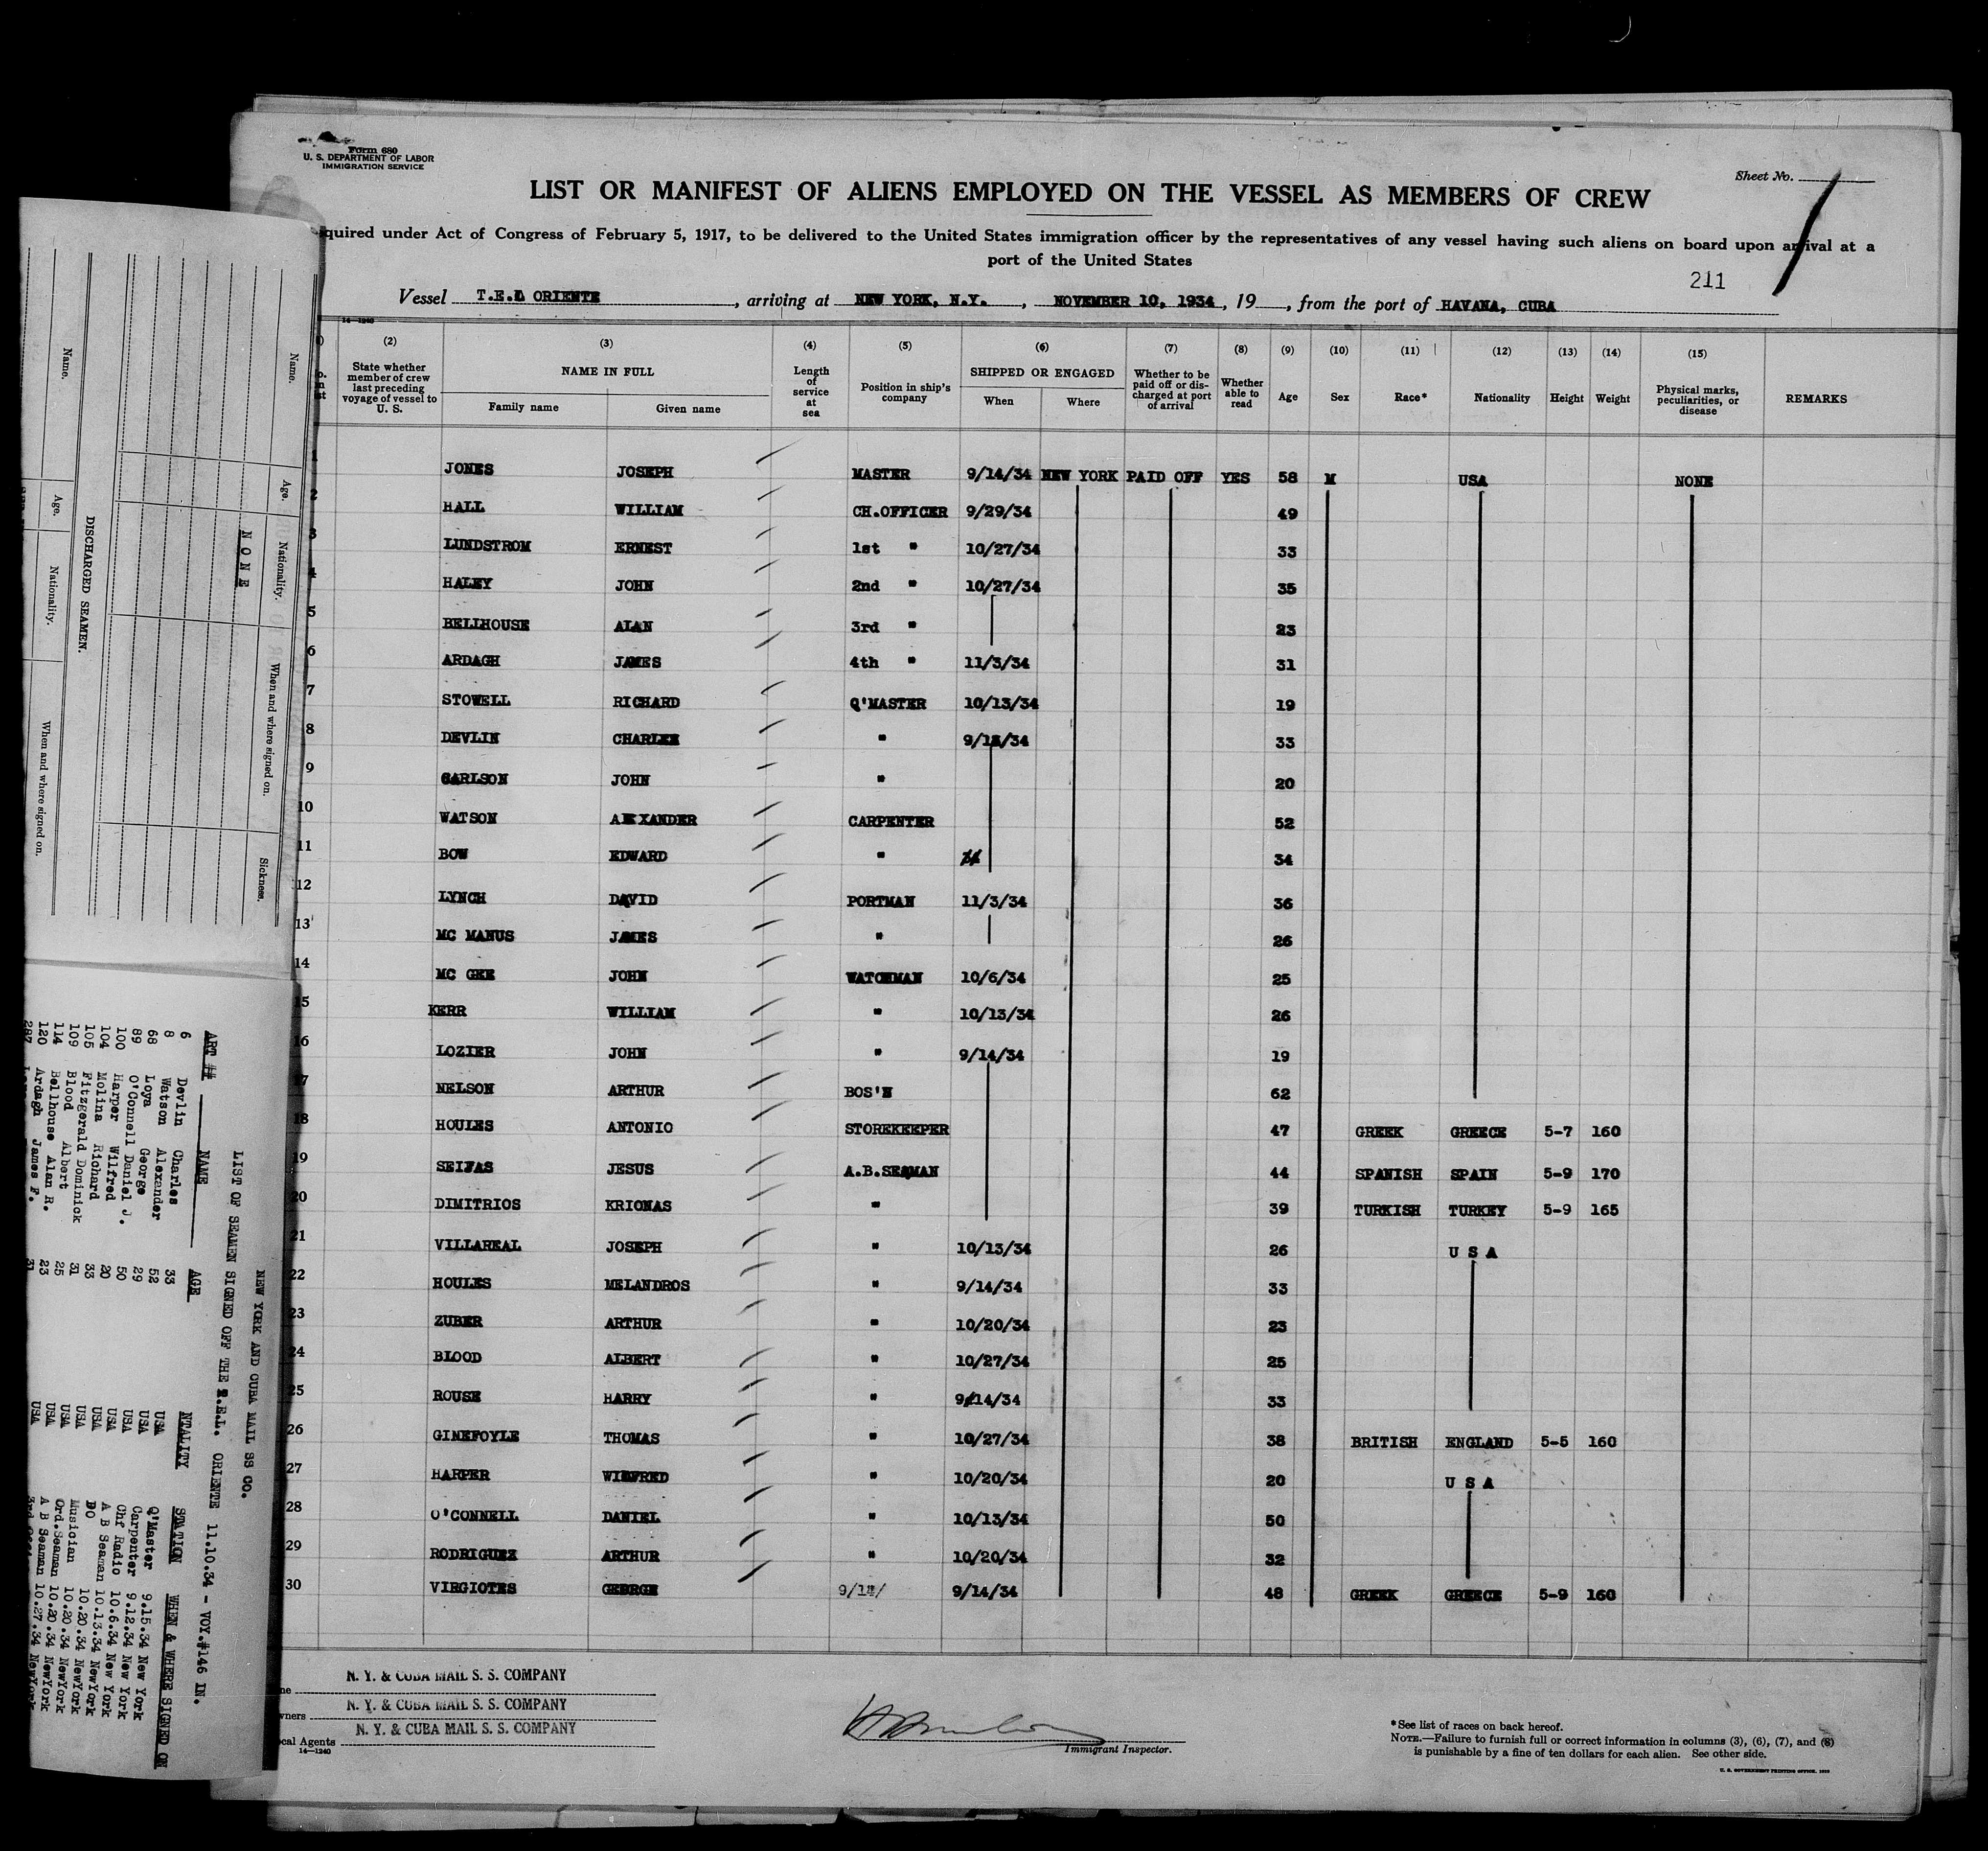 Form 680
U. S. DEPARTMENT OF LABOR
IMMIGRATION SERVICE
Sheet No.
LIST OR MANIFEST OF ALIENS EMPLOYED ON THE VESSEL AS MEMBERS OF CREW
quired under Act of Congress of February 5, 1917, to be delivered to the United States immigration officer by the representatives of any vessel having such aliens on board upon arrival at a
port of the United States
211
Vessel T.E.L ORIENTE, arriving at NEW YORK, N.Y., NOVEMBER 10, 1934, 19, from the port of HAVANA, CUBA
14—1240
(2) (3) (4) (5) (6) (7) (8) (9) (10) (11) (12) (13) (14) (15)
State whether member of crew last preceding voyage of vessel to U. S. NAME IN FULL Family name Given name Length of service at sea Position in ship's company SHIPPED OR ENGAGED When Where Whether to be paid off or discharged at port of arrival Whether able to read Age Sex Race* Nationality Height Weight Physical marks, peculiarities, or disease REMARKS
1 JONES JOSEPH MASTER 9/14/34 NEW YORK PAID OFF YES 58 M USA NONE
2 HALL WILLIAM CH.OFFICER 9/29/34 49
3 LUNDSTROM ERNEST 1st " 10/27/34 33
4 HALEY JOHN 2nd " 10/27/34 35
5 BELLHOUSE ALAN 3rd " 23
6 ARDAGH JAMES 4th " 11/3/34 31
7 STOWELL RICHARD Q'MASTER 10/13/34 19
8 DEVLIN CHARLES " 33
9 CARLSON JOHN " 20
10 WATSON ALEXANDER CARPENTER 52
11 BOW EDWARD " 34
12 LYNCH DAVID PORTMAN 11/3/34 36
13 MC MANUS JAMES " 26
14 MC GEE JOHN WATCHMAN 10/6/34 25
15 KERR WILLIAM " 10/13/34 26
16 LOZIER JOHN " 9/14/34 19
17 NELSON ARTHUR BOS'N 62
18 HOULES ANTONIO STOREKEEPER 47 GREEK GREECE 5-7 160
19 SEIJAS JESUS A.B.SEAMAN 44 SPANISH SPAIN 5-9 170
20 DIMITRIOS KRIONAS " 39 TURKISH TURKEY 5-9 165
21 VILLAREAL JOSEPH " 10/13/34 26 U S A
22 HOULES MELANDROS " 9/14/34 33
23 ZUBER ARTHUR " 10/20/34 23
24 BLOOD ALBERT " 10/27/34 25
25 ROUSE HARRY " 9/14/34 33
26 GINEFOYLE THOMAS " 10/27/34 38 BRITISH ENGLAND 5-5 160
27 HARPER WILFRED " 10/20/34 20 U S A
28 O'CONNELL DANIEL " 10/13/34 50
29 RODRIGUEZ ARTHUR " 10/20/34 32
30 VIRGIOTES GEORGE 9/14/ 9/14/34 48 GREEK GREECE 5-9 160
N. Y. & CUBA MAIL S. S. COMPANY
wners N. Y. & CUBA MAIL S. S. COMPANY
cal Agents N. Y. & CUBA MAIL S. S. COMPANY
14—1240
Immigrant Inspector.
*See list of races on back hereof.
NOTE.—Failure to furnish full or correct information in columns (3), (6), (7), and (8)
is punishable by a fine of ten dollars for each alien. See other side.
U. S. GOVERNMENT PRINTING OFFICE
Name. Age. Nationality. When and where signed on. Sickness.
NONE
DISCHARGED SEAMEN.
Name. Age. Nationality. When and where signed on.
NEW YORK AND CUBA MAIL SS CO.
LIST OF SEAMEN SIGNED OFF THE T.E.L. ORIENTE 11.10.34 - VOY.#146 IN.
ART ## NAME AGE NTALITY STATION WHEN & WHERE SIGNED ON
6 Devlin Charles 33 USA Q'Master 9.15.34 New York
8 Watson Alexander 52 USA Carpenter 9.12.34 New York
68 Loya George 29 USA Chf Radio 10.6.34 New York
89 O'Connell Daniel J. 50 USA A B Seaman 10.13.34 NewYork
100 Harper Wilfred 20 USA DO 10.20.34 NewYork
104 Molina Richard 33 USA Musician 10.20.34 NewYork
105 Fitzgerald Dominick 31 USA Ord.Seaman 10.20.34 NewYork
109 Blood Albert 25 USA A B Seaman 10.27.34 NewYork
114 Bellhouse Alan R. 23 USA
120 Ardagh James F. 31